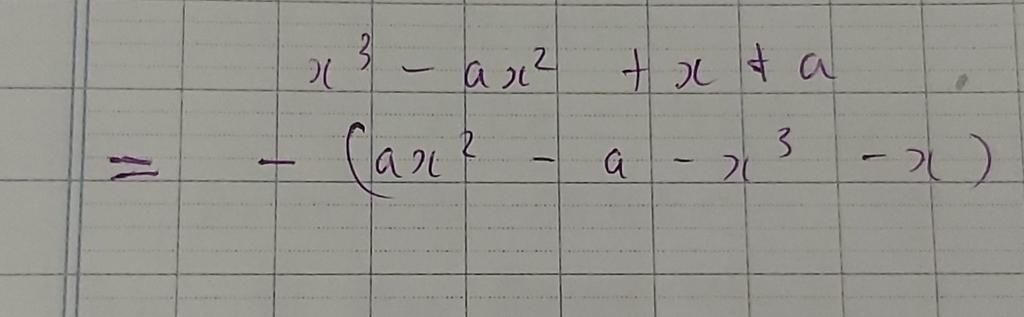 x³ - ax² + x + a
= - (ax² - a - x³ - x)